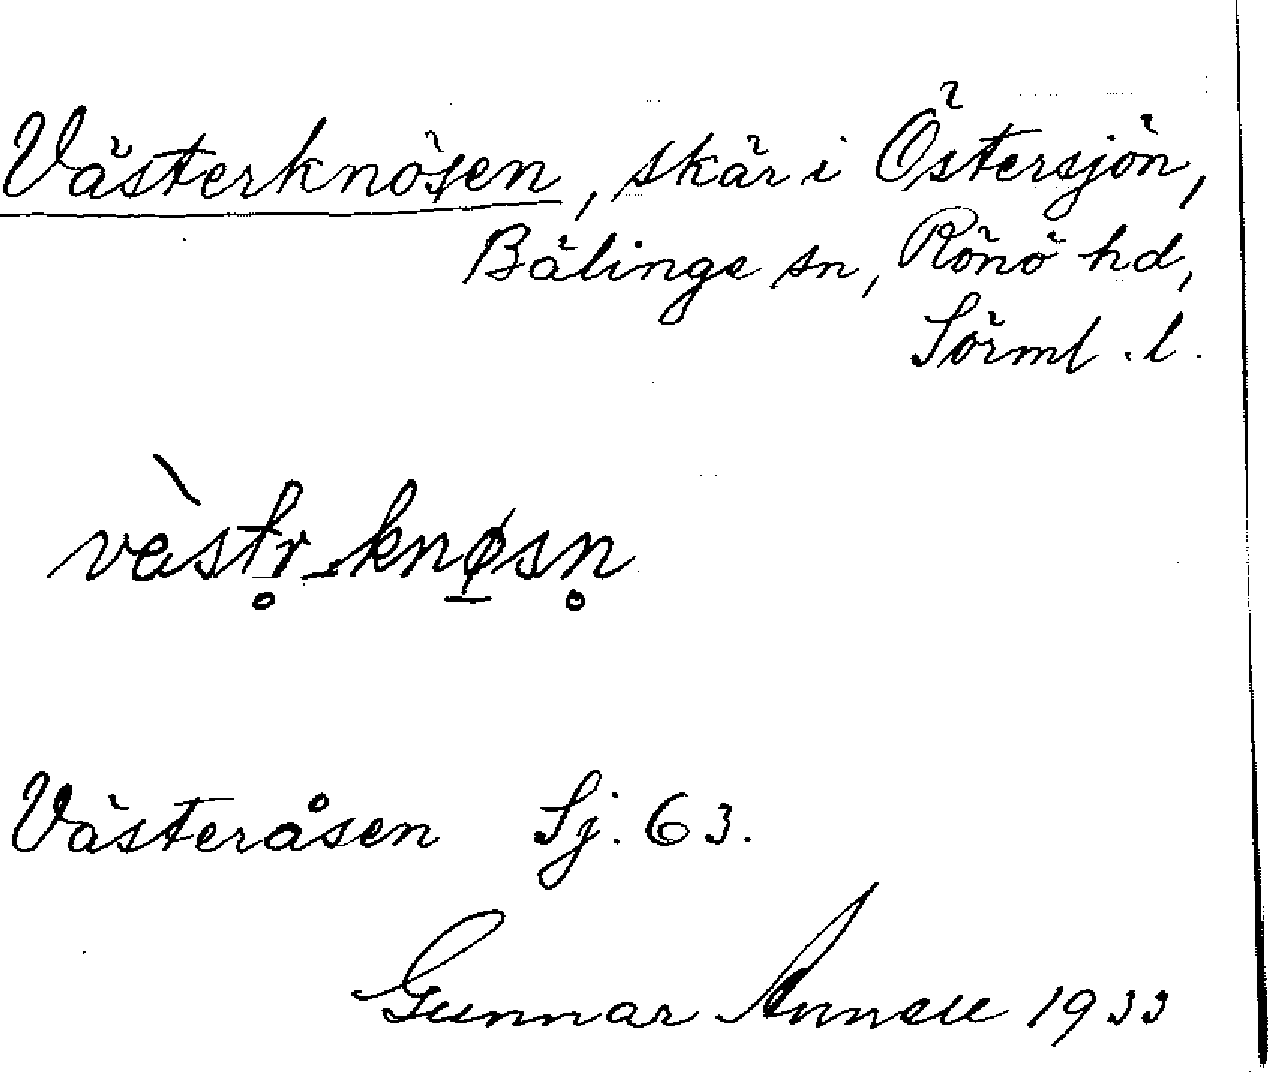 Västerknösen, skär i Östersjön,
Bälinge sn, Rönö hd,
Sörml. l.
vàstr̥_knø̱sn̥
Västeråsen Sj. 63.
Gunnar Annell 1933